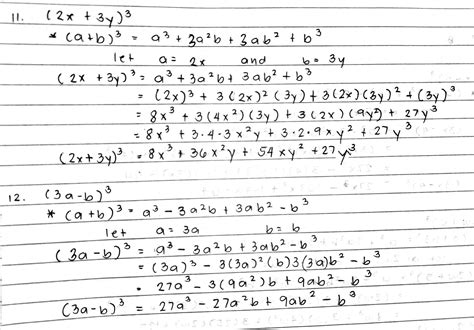 11. (2x + 3y)³
* (a+b)³ = a³ + 3a²b + 3ab² + b³
let a = 2x and b = 3y
(2x + 3y)³ = a³ + 3a²b + 3ab² + b³
= (2x)³ + 3(2x)² (3y) + 3(2x)(3y)² + (3y)³
= 8x³ + 3(4x²)(3y) + 3(2x)(9y²) + 27y³
= 8x³ + 3·4·3x²y + 3·2·9xy² + 27y³
(2x+3y)³ = 8x³ + 36x²y + 54xy² + 27y³
12. (3a-b)³
* (a+b)³ = a³ - 3a²b + 3ab² - b³
let a = 3a b = b
(3a-b)³ = a³ - 3a²b + 3ab² - b³
= (3a)³ - 3(3a)²(b)3(3a)b² - b³
= 27a³ - 3(9a²)b + 9ab² - b³
(3a-b)³ = 27a³ - 27a²b + 9ab² - b³